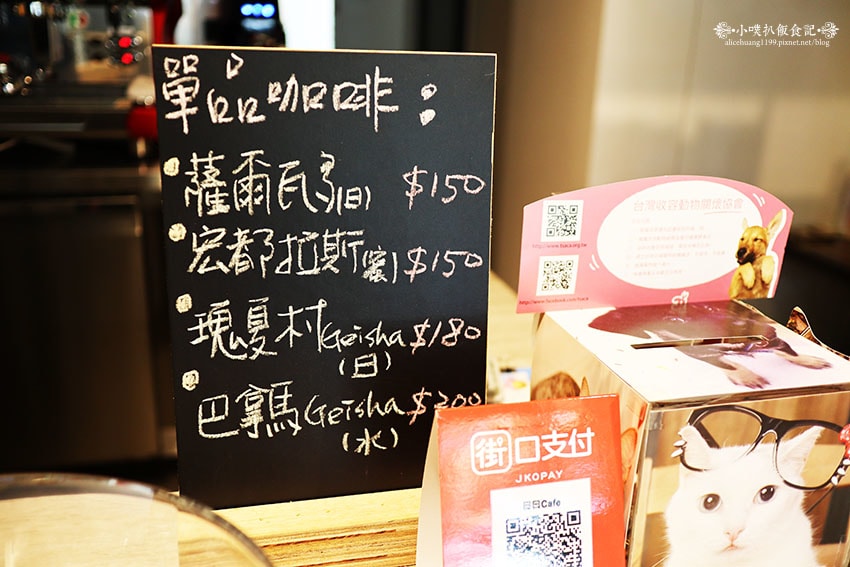 小噗扒飯食記
alicehuang1199.pixnet.net/blog
單品咖啡：
薩爾瓦多(日) $150
宏都拉斯(蜜) $150
瑰夏村Geisha $180
(日)
巴拿馬Geisha $200
(水)
台灣收容動物關懷協會
街口支付
JKOPAY
Cafe